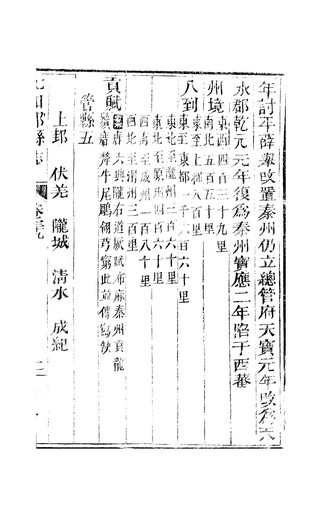 年討平薛舉改置秦州仍立總管府天寶元年改爲天
水郡乾元元年復爲秦州寶應二年陷于西蕃
州境
東西四百三十九里
南北五百五十里
八到
東至上都八百里
東至東都一千六百六十里
東北至隴州三百六十里
東北至原州四百六十里
西南至成州一百八十里
西北至渭州三百里
貢賦
案唐六典隴右道厥賦布麻秦州貢龍
鬚席犛牛尾鵰翎芎藭此葢傳寫缺
管縣五
上邽 伏羌 隴城 清水 成紀
元和郡縣志 卷三十九